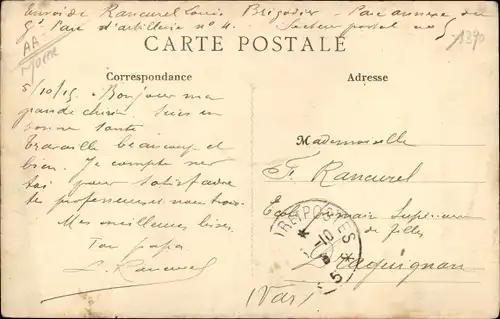 Envoi de Rancurel Louis Brigadier - Parc annexe du
Gd Parc d'artillerie no 4. Secteur postal no 5
AA
1390
CARTE POSTALE
Correspondance
Adresse
5/10/15. Bonjour ma
grande chérie. Suis en
bonne santé.
Travaille beaucoup et
bien. Je compte sur
toi pour satisfaire
tes professeurs et nous trois.
Mes meilleures bises.
Ton papa
L. Rancurel
Mademoiselle
F. Rancurel
Ecole Primaire Supérieure
de filles
Draguignan
(Var)
TRESOR ET POSTES
-10
5